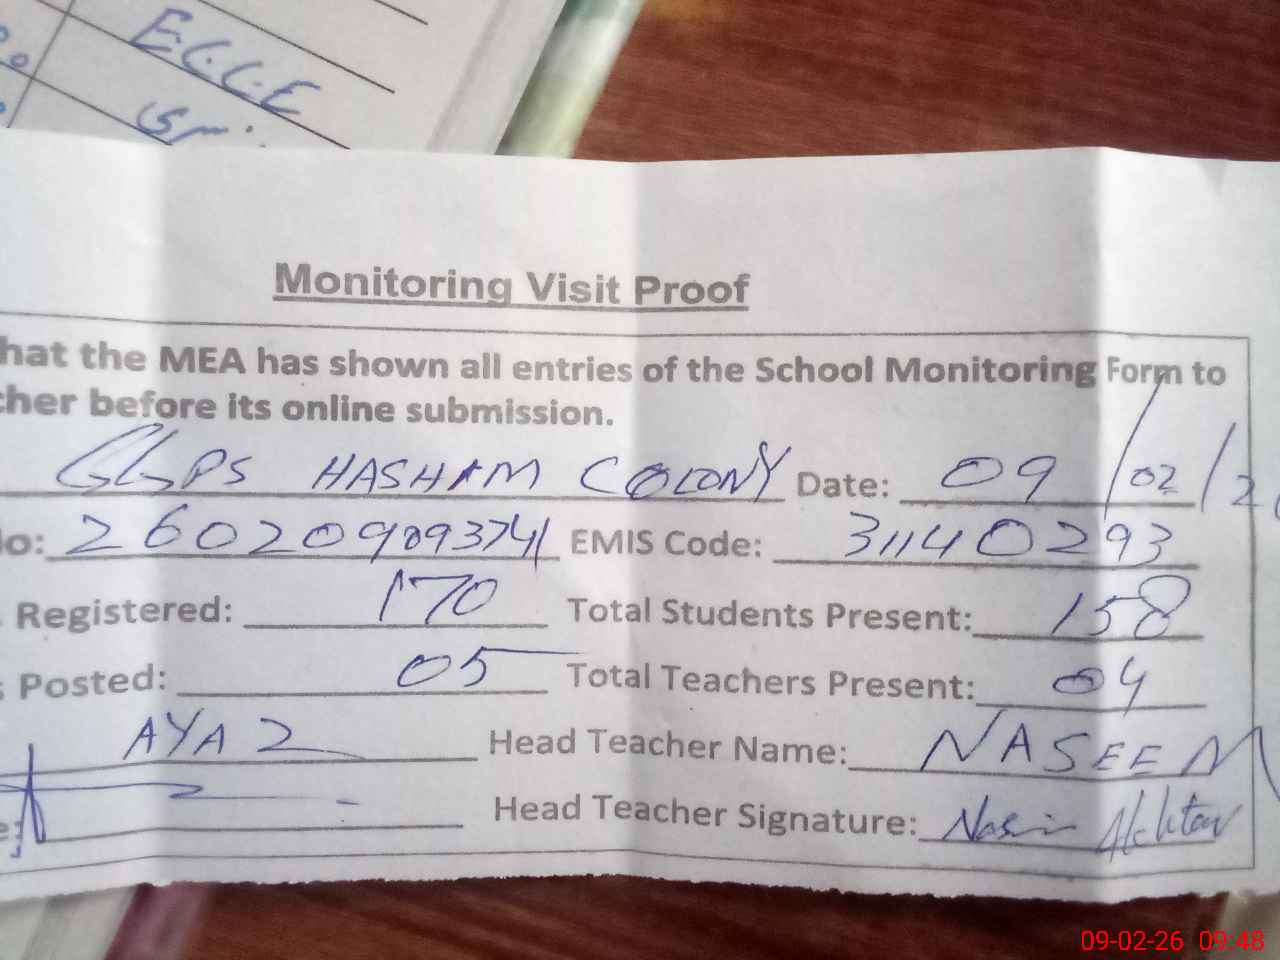 E.C.C.E
Monitoring Visit Proof
hat the MEA has shown all entries of the School Monitoring Form to
cher before its online submission.
GGPS HASHAM COLONY Date: 09/02/2
No: 260209093741 EMIS Code: 31140293
Registered: 170 Total Students Present: 158
s Posted: 05 Total Teachers Present: 04
AYAZ Head Teacher Name: NASEEM
Head Teacher Signature: Nasim Akhtar
09-02-26 09:48